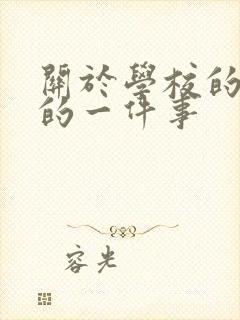 關於學校的
的一件事
容光